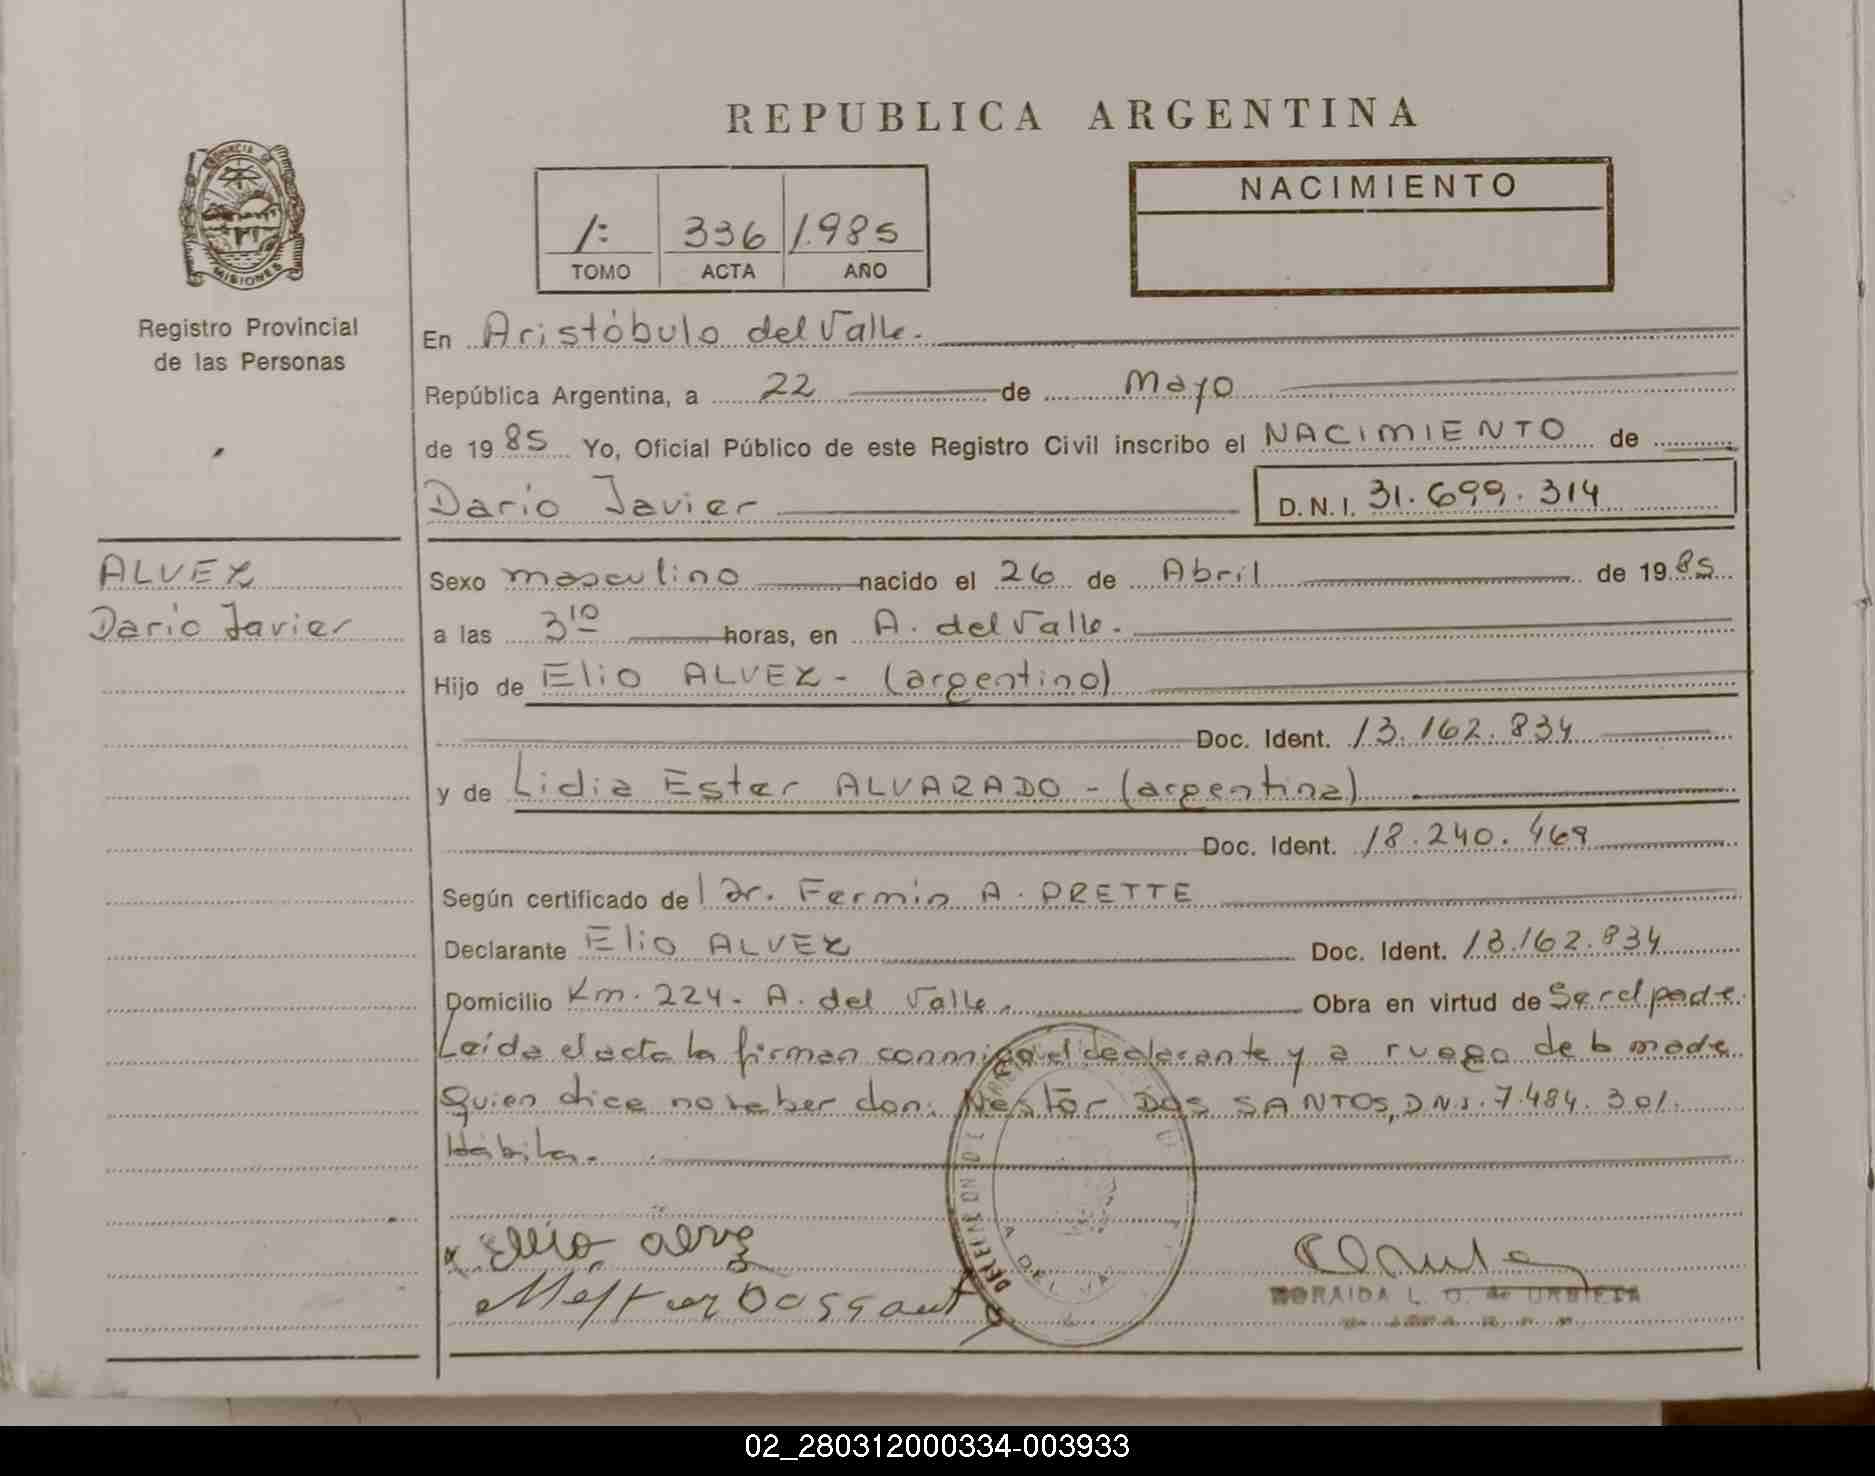 REPUBLICA ARGENTINA
PROVINCIA DE
MISIONES
Registro Provincial
de las Personas
1: 336 1.985
TOMO ACTA AÑO
NACIMIENTO
En Aristóbulo del Valle.
República Argentina, a 22 de Mayo
de 1985 Yo, Oficial Público de este Registro Civil inscribo el NACIMIENTO de
Dario Javier D.N.I. 31.699.314
ALVEZ
Dario Javier
Sexo masculino nacido el 26 de Abril de 1985
a las 3 10 horas, en A. del Valle.
Hijo de Elio ALVEZ - (argentino)
Doc. Ident. 13.162.834
y de Lidia Ester ALVARADO - (argentina)
Doc. Ident. 18.240.469
Según certificado del Dr. Fermin A. PRETTE
Declarante Elio ALVEZ Doc. Ident. 13.162.834
Domicilio Km. 224. A. del Valle. Obra en virtud de Ser el padre.
Leída el acta la firman conmigo el declarante y a ruego de la madre
Quien dice no saber don: Néstor DOS SANTOS, D.N.I. 7.484.301.
Hábiles.
Elio Alvez
A. DEL VA
ZORAIDA L. O. de URBIETA
02_280312000334-003933